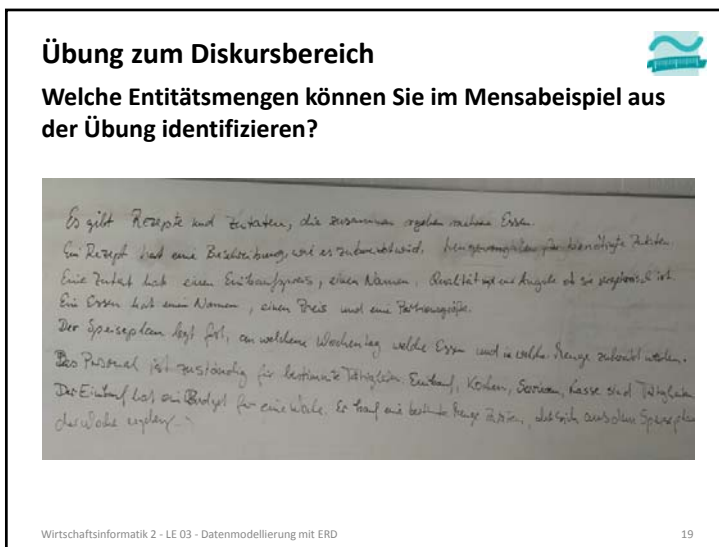 Übung zum Diskursbereich
Welche Entitätsmengen können Sie im Mensabeispiel aus
der Übung identifizieren?
Es gibt Rezepte und Zutaten, die zusammen ergeben Essen.
Ein Rezept hat eine Beschreibung, wie es zubereitet wird.
Eine Zutat hat einen Einkaufspreis, einen Namen, Qualität Angabe ob sie vegetarisch ist.
Ein Essen hat einen Namen, einen Preis und eine Portionsgröße.
Der Speiseplan legt fest, an welchem Wochentag welche Essen und in welcher Menge zubereitet werden.
Das Personal ist zuständig für bestimmte Tätigkeiten. Einkauf, Kochen, Kasse sind Tätigkeiten
Der Einkauf hat ein Budget für eine Woche. Er kauf eine bestimmte Menge Zutaten, aus dem Speiseplan
der Woche
Wirtschaftsinformatik 2 - LE 03 - Datenmodellierung mit ERD
19